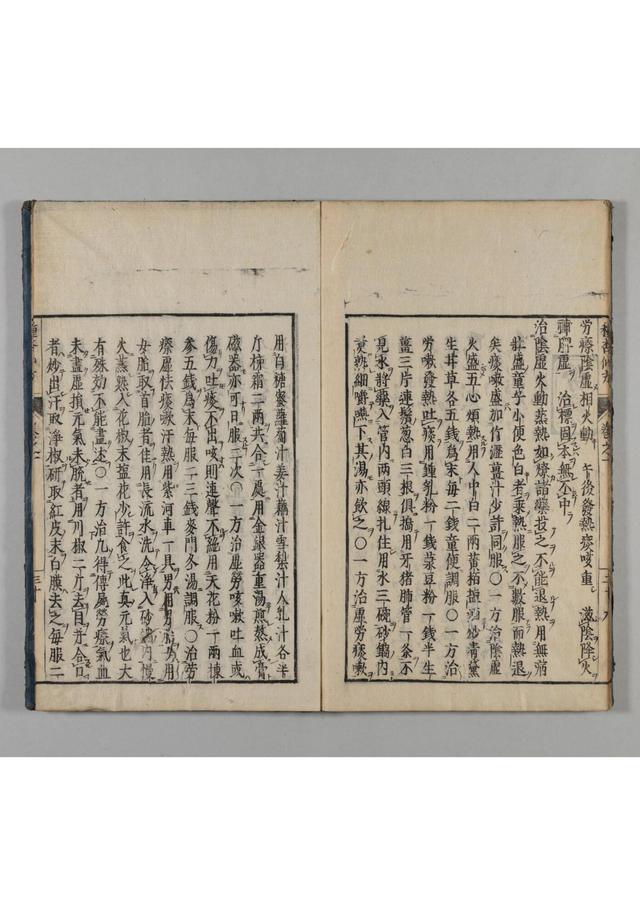 勞瘵陰虛相火動 午後發熱痰咳重 滋陰降火
補脾虛 治標固本無不中
治陰虛火動蒸熱如燎諸藥投之不能退熱用無病
壯盛童子小便色白者乘熱服之不數服而熱退
矣痰嗽盛加竹瀝薑汁少許同服〇一方治陰虛
火盛五心煩熱用人中白二兩黃柏鹽炒青黛
生甘草各五錢爲末每二錢童便調服〇一方治
勞嗽發熱吐痰用鍾乳粉一錢菉豆粉一錢半生
薑三片連鬚葱白三根俱搗用牙猪肺管一條不
見水將藥入管內兩頭線扎住用水三碗砂鍋內
煑熟細嚼嚥下其湯亦飲之〇一方治虛勞痰嗽
用白糖蜜蘿蔔汁姜汁藕汁雪梨汁人乳汁各半
斤柿霜二兩共合一處用金銀器重湯煎熬成膏
磁器亦可日服二次〇一方治虛勞咳嗽吐血或
傷力吐痰不出咳則連聲不絕用天花粉一兩揀
參五錢爲末每服二三錢麥門冬湯調服〇治勞
瘵虛怯痰嗽汗熱用紫河車一具男用男胎女用
女胎取首胎者佳用長流水洗令淨入砂鍋內慢
火蒸熟入花椒末塩花少許食之此真元氣也大
有殊効不能盡述〇一方治凡得傳屍勞瘵氣血
未盡虛損元氣未脫者用川椒二斤去目并合口
者炒出汗取淨椒研取紅皮末白膜去之每服二